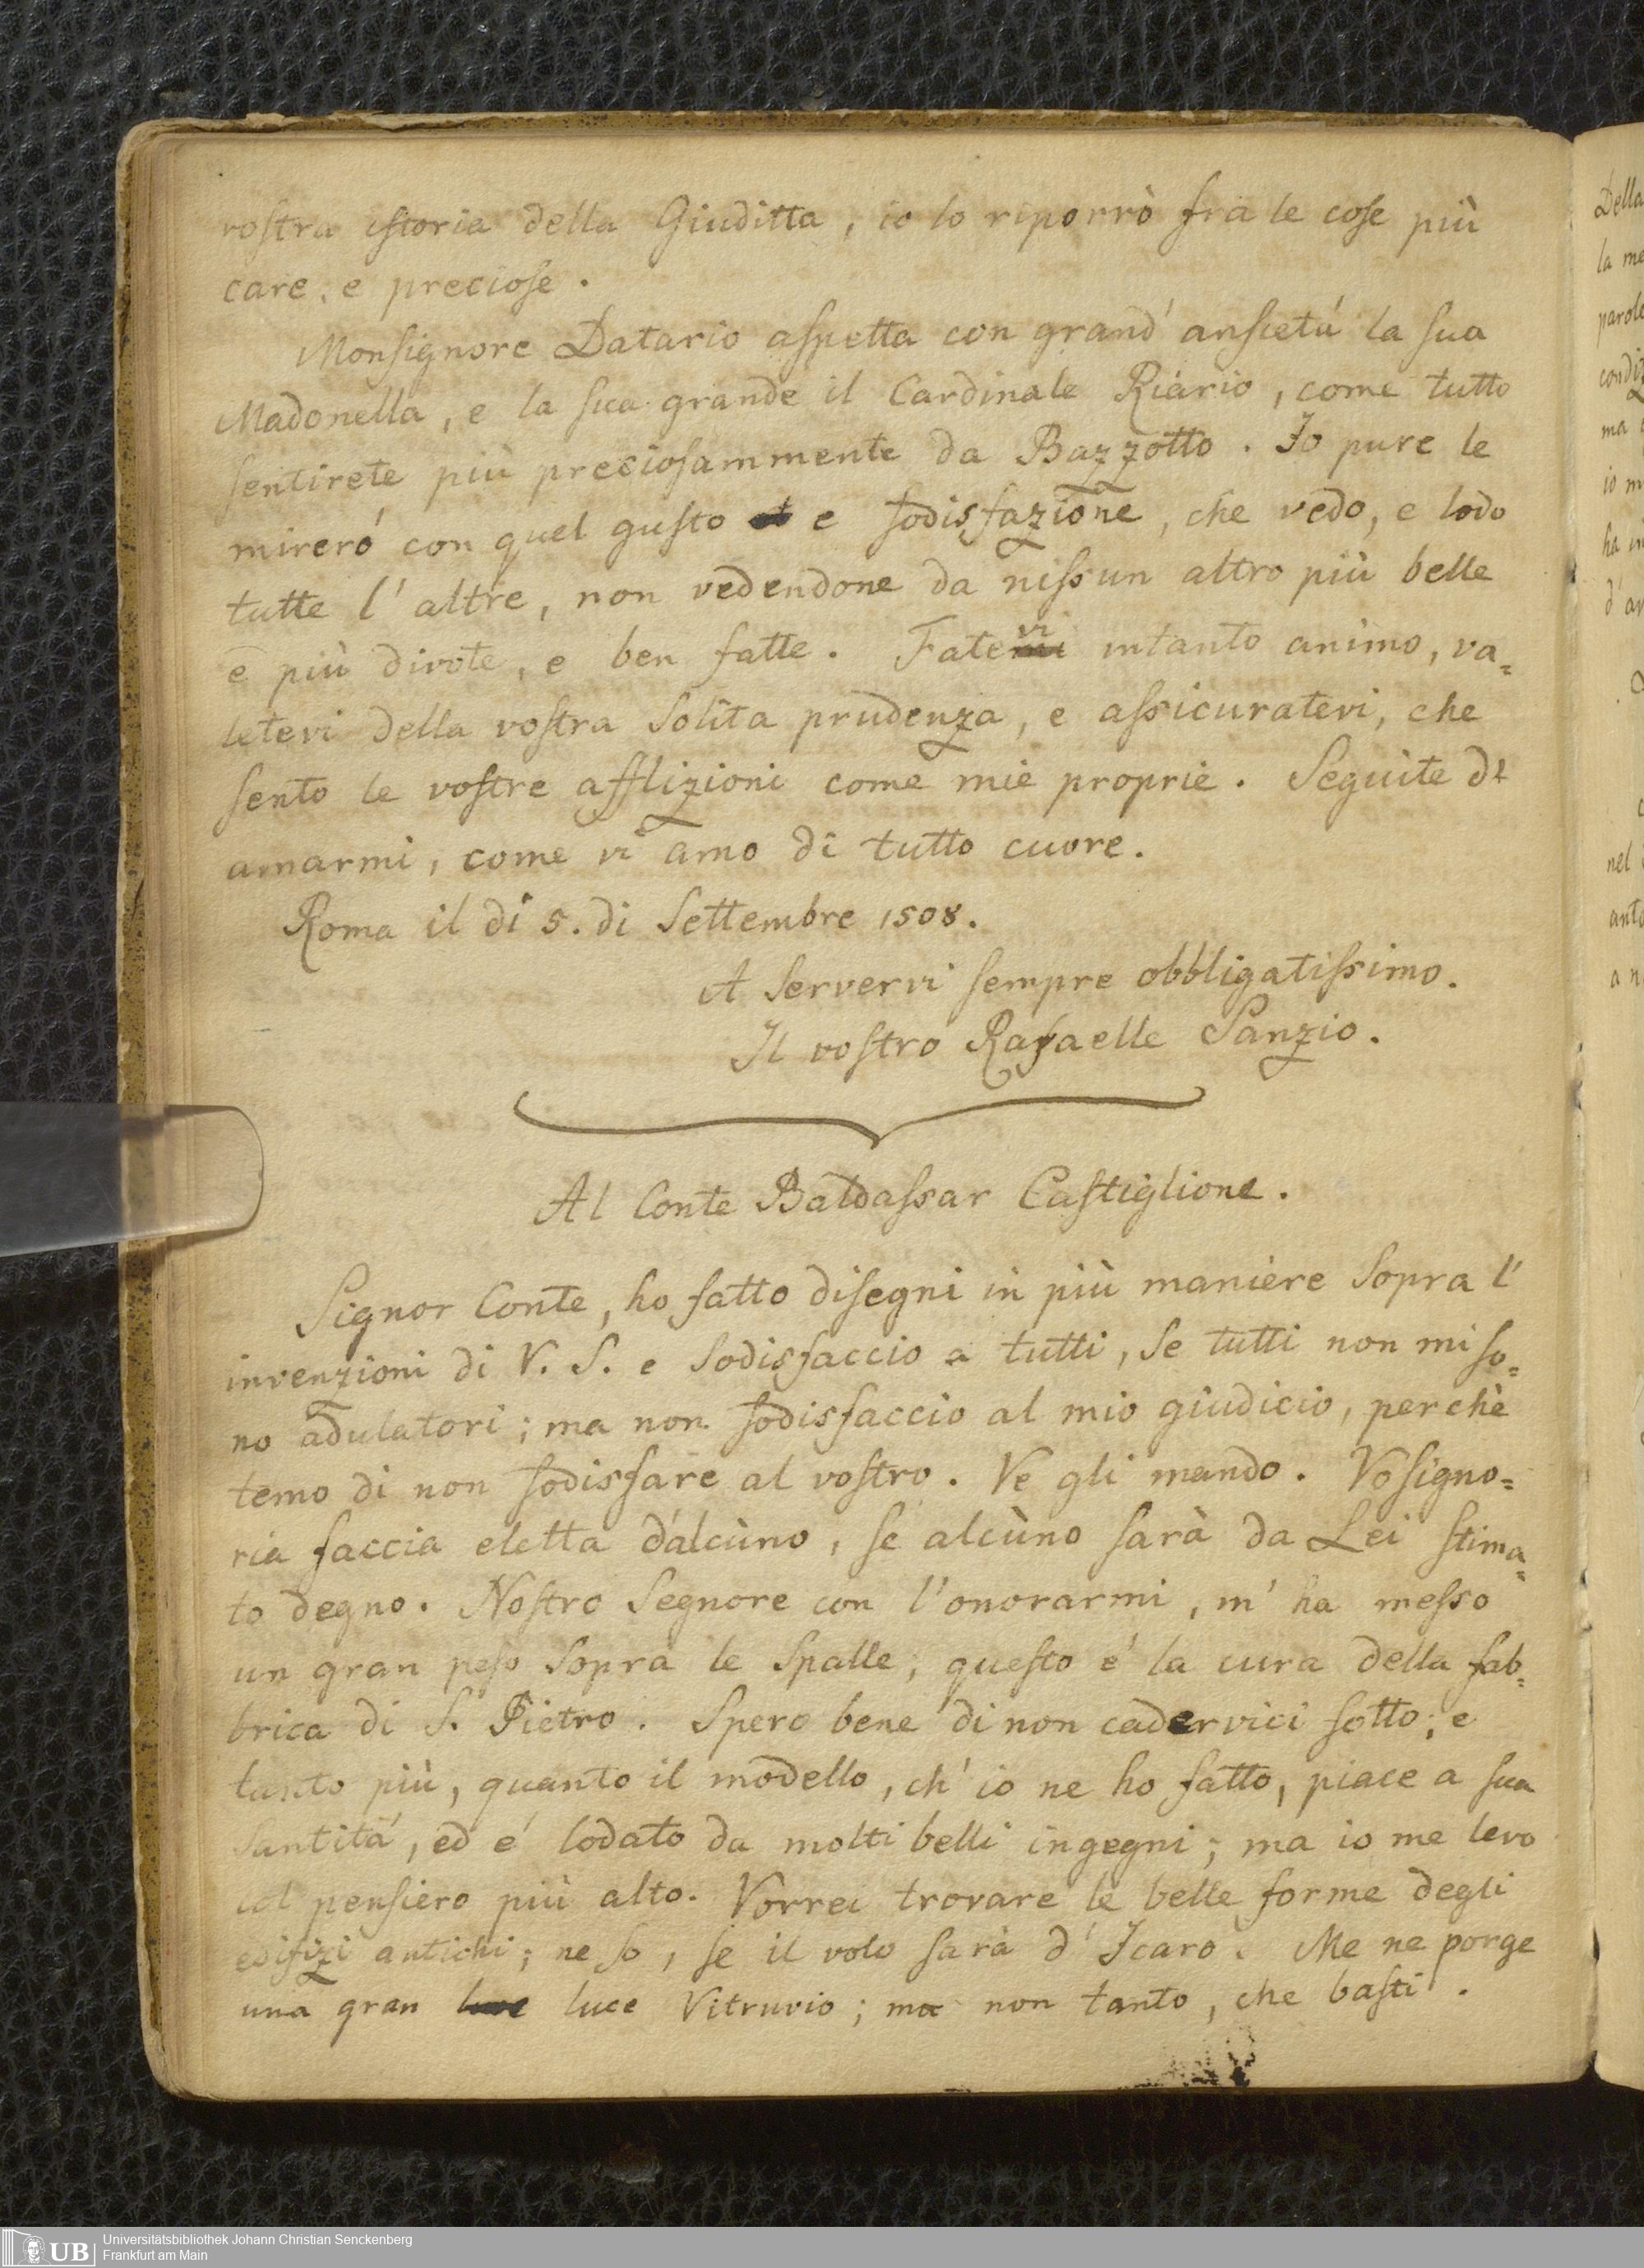 vostra istoria della Giuditta, io lo riporrò fra le cose più
care, e preciose.
Monsignore Datario aspetta con grand' ansietú la sua
Madonella, e la sua grande il Cardinale Riario, come tutto
sentirete più preciosammente da Bazzotto. Io pure le
mireró con quel gusto e sodisfazione, che vedo, e lodo
tutte l' altre, non vedendone da nissun altro più belle
e più divote, e ben fatte. Fatevi intanto animo, va=
letevi della vostra solita prudenza, e assicuratevi, che
sento le vostre afflizioni come mie proprie. Seguite di
amarmi, come vi amo di tutto cuore.
Roma il di 5. di Settembre 1508.
A Servervi sempre obbligatissimo.
Il vostro Rafaelle Sanzio.
Al Conte Baldassar Castiglione.
Signor Conte, ho fatto disegni in più maniere sopra l'
invenzioni di V. S. e sodisfaccio a tutti, se tutti non mi so=
no adulatori; ma non sodisfaccio al mio giudicio, perchè
temo di non sodisfare al vostro. Ve gli mando. Vosigno=
ria faccia eletta d'alcùno, se alcùno sarà da Lei stima=
to degno. Nostro Segnore con l'onorarmi, m' ha messo
un gran peso sopra le spalle; questo é la cura della fab=
brica di S. Pietro. Spero bene di non cadervici sotto; e
tanto più, quanto il modello, ch' io ne ho fatto, piace a sua
santitá, ed é lodato da molti belli ingegni; ma io me levo
col pensiero più alto. Vorrei trovare le belle forme degli
edifizi antichi; ne so, se il volo sarà d' Icaro. Me ne porge
una gran luce Vitruvio; ma non tanto, che basti.
Della
la me
parole
condiz
ma
io m
ha
nel
anto
a n
UB Universitätsbibliothek Johann Christian Senckenberg
Frankfurt am Main